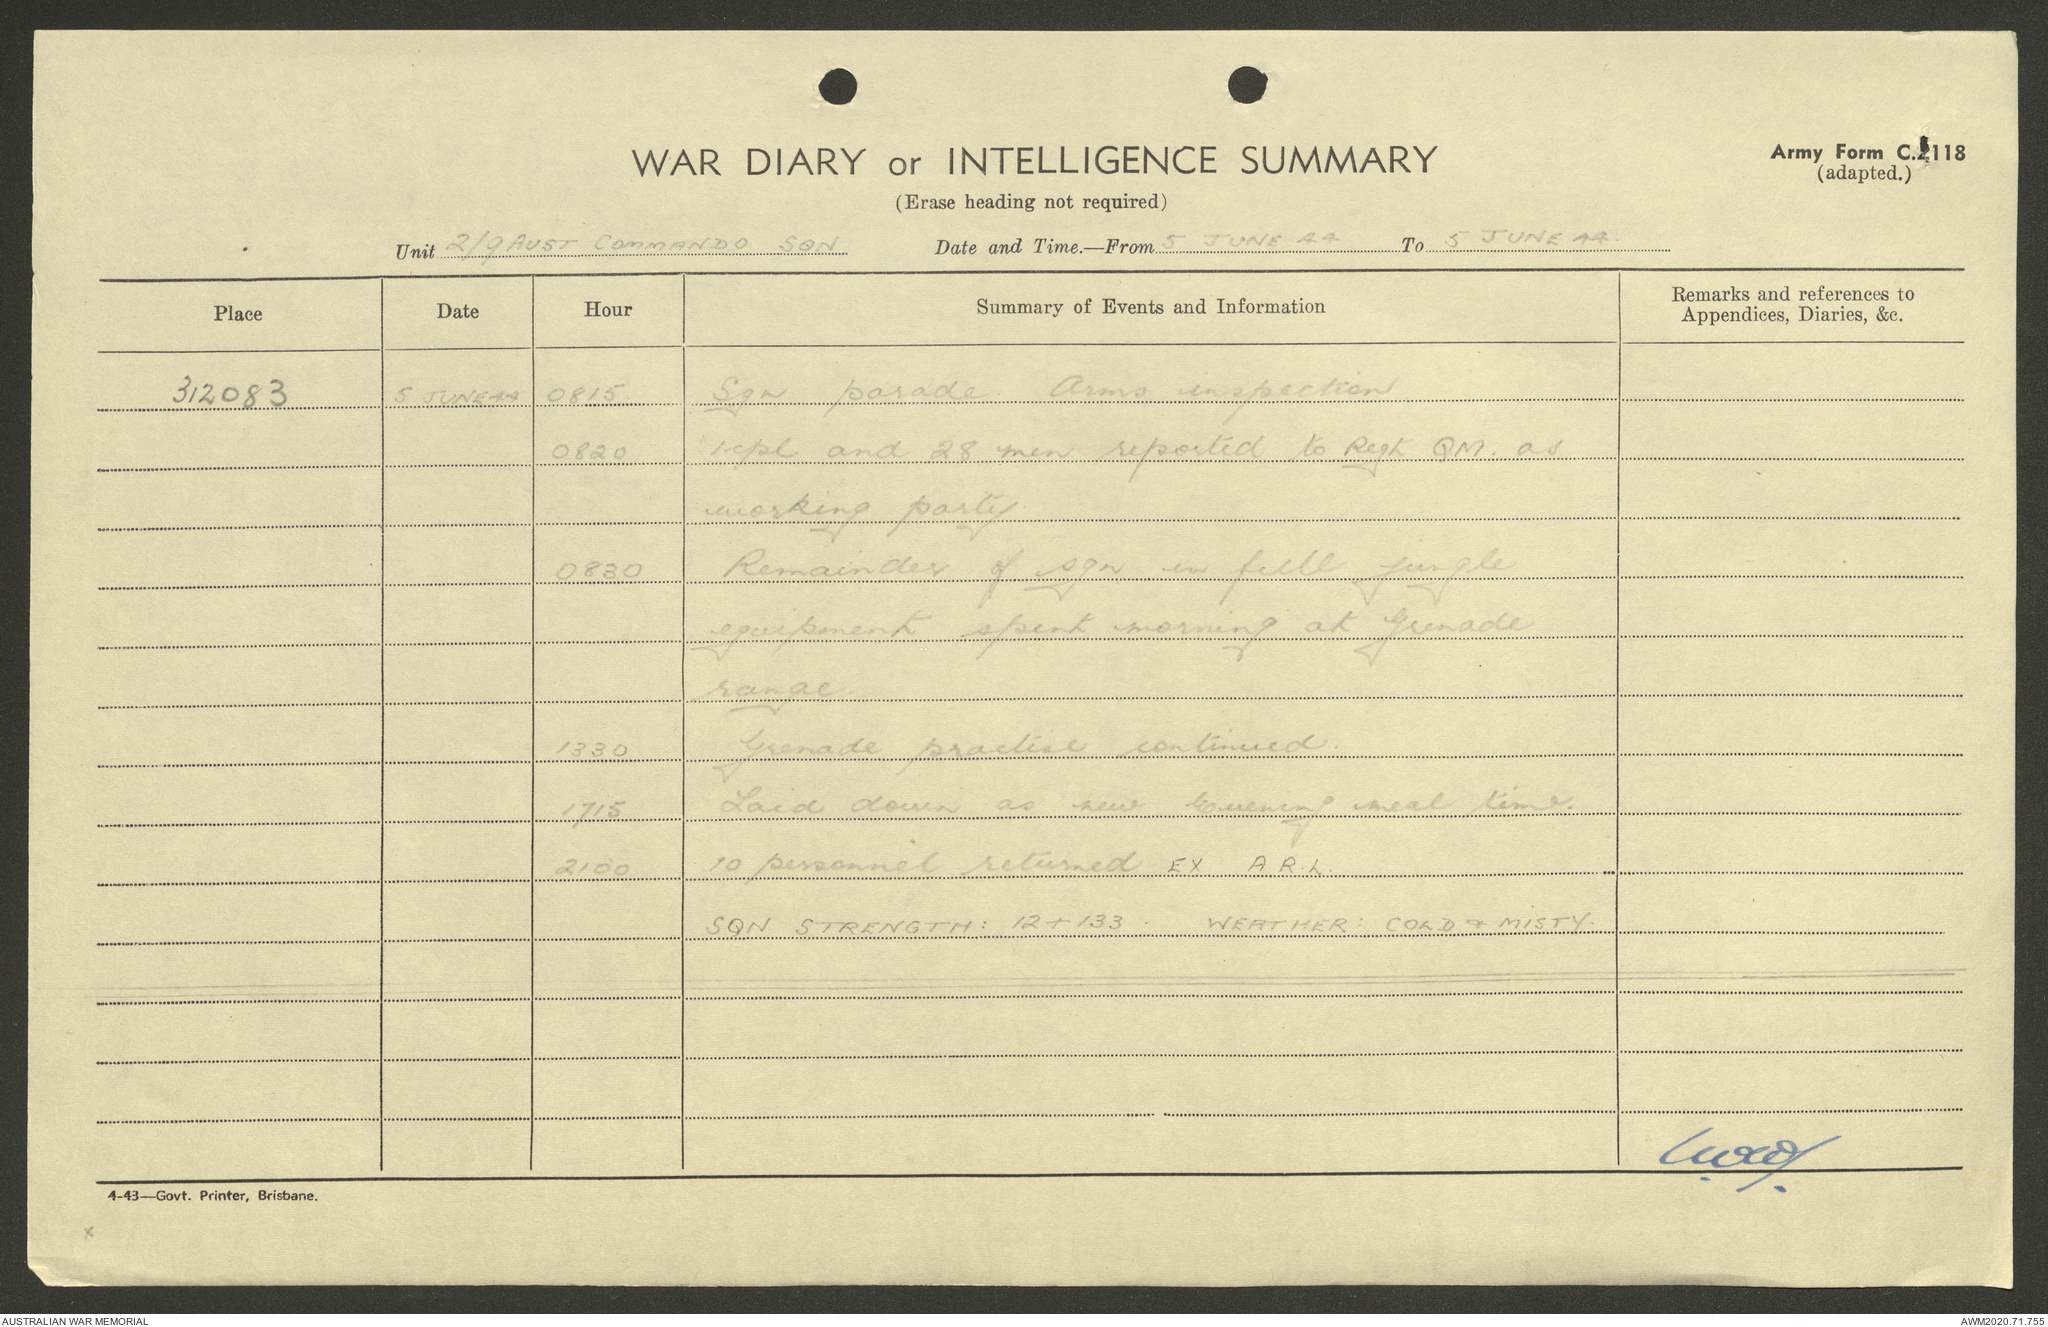 WAR DIARY or INTELLIGENCE SUMMARY
Army Form C.2118
(adapted.)
(Erase heading not required)
Unit 2/9 AUST COMMANDO SQN Date and Time.—From 5 JUNE 44 To 5 JUNE 44.
Place Date Hour Summary of Events and Information Remarks and references to Appendices, Diaries, &c.
312083 5 JUNE 44 0815 Sqn parade. Arms inspection
0820 1 cpl and 28 men reported to Regt QM. as
working party
0830 Remainder of sqn in full jungle
equipment spent morning at Grenade
range.
1330 Grenade practise continued.
1715 Laid down as new Evening meal time.
2100 10 personnel returned EX A.R.L.
SQN STRENGTH: 12 + 133. WEATHER: COLD & MISTY.
4-43—Govt. Printer, Brisbane.
x
AUSTRALIAN WAR MEMORIAL AWM2020.71.755